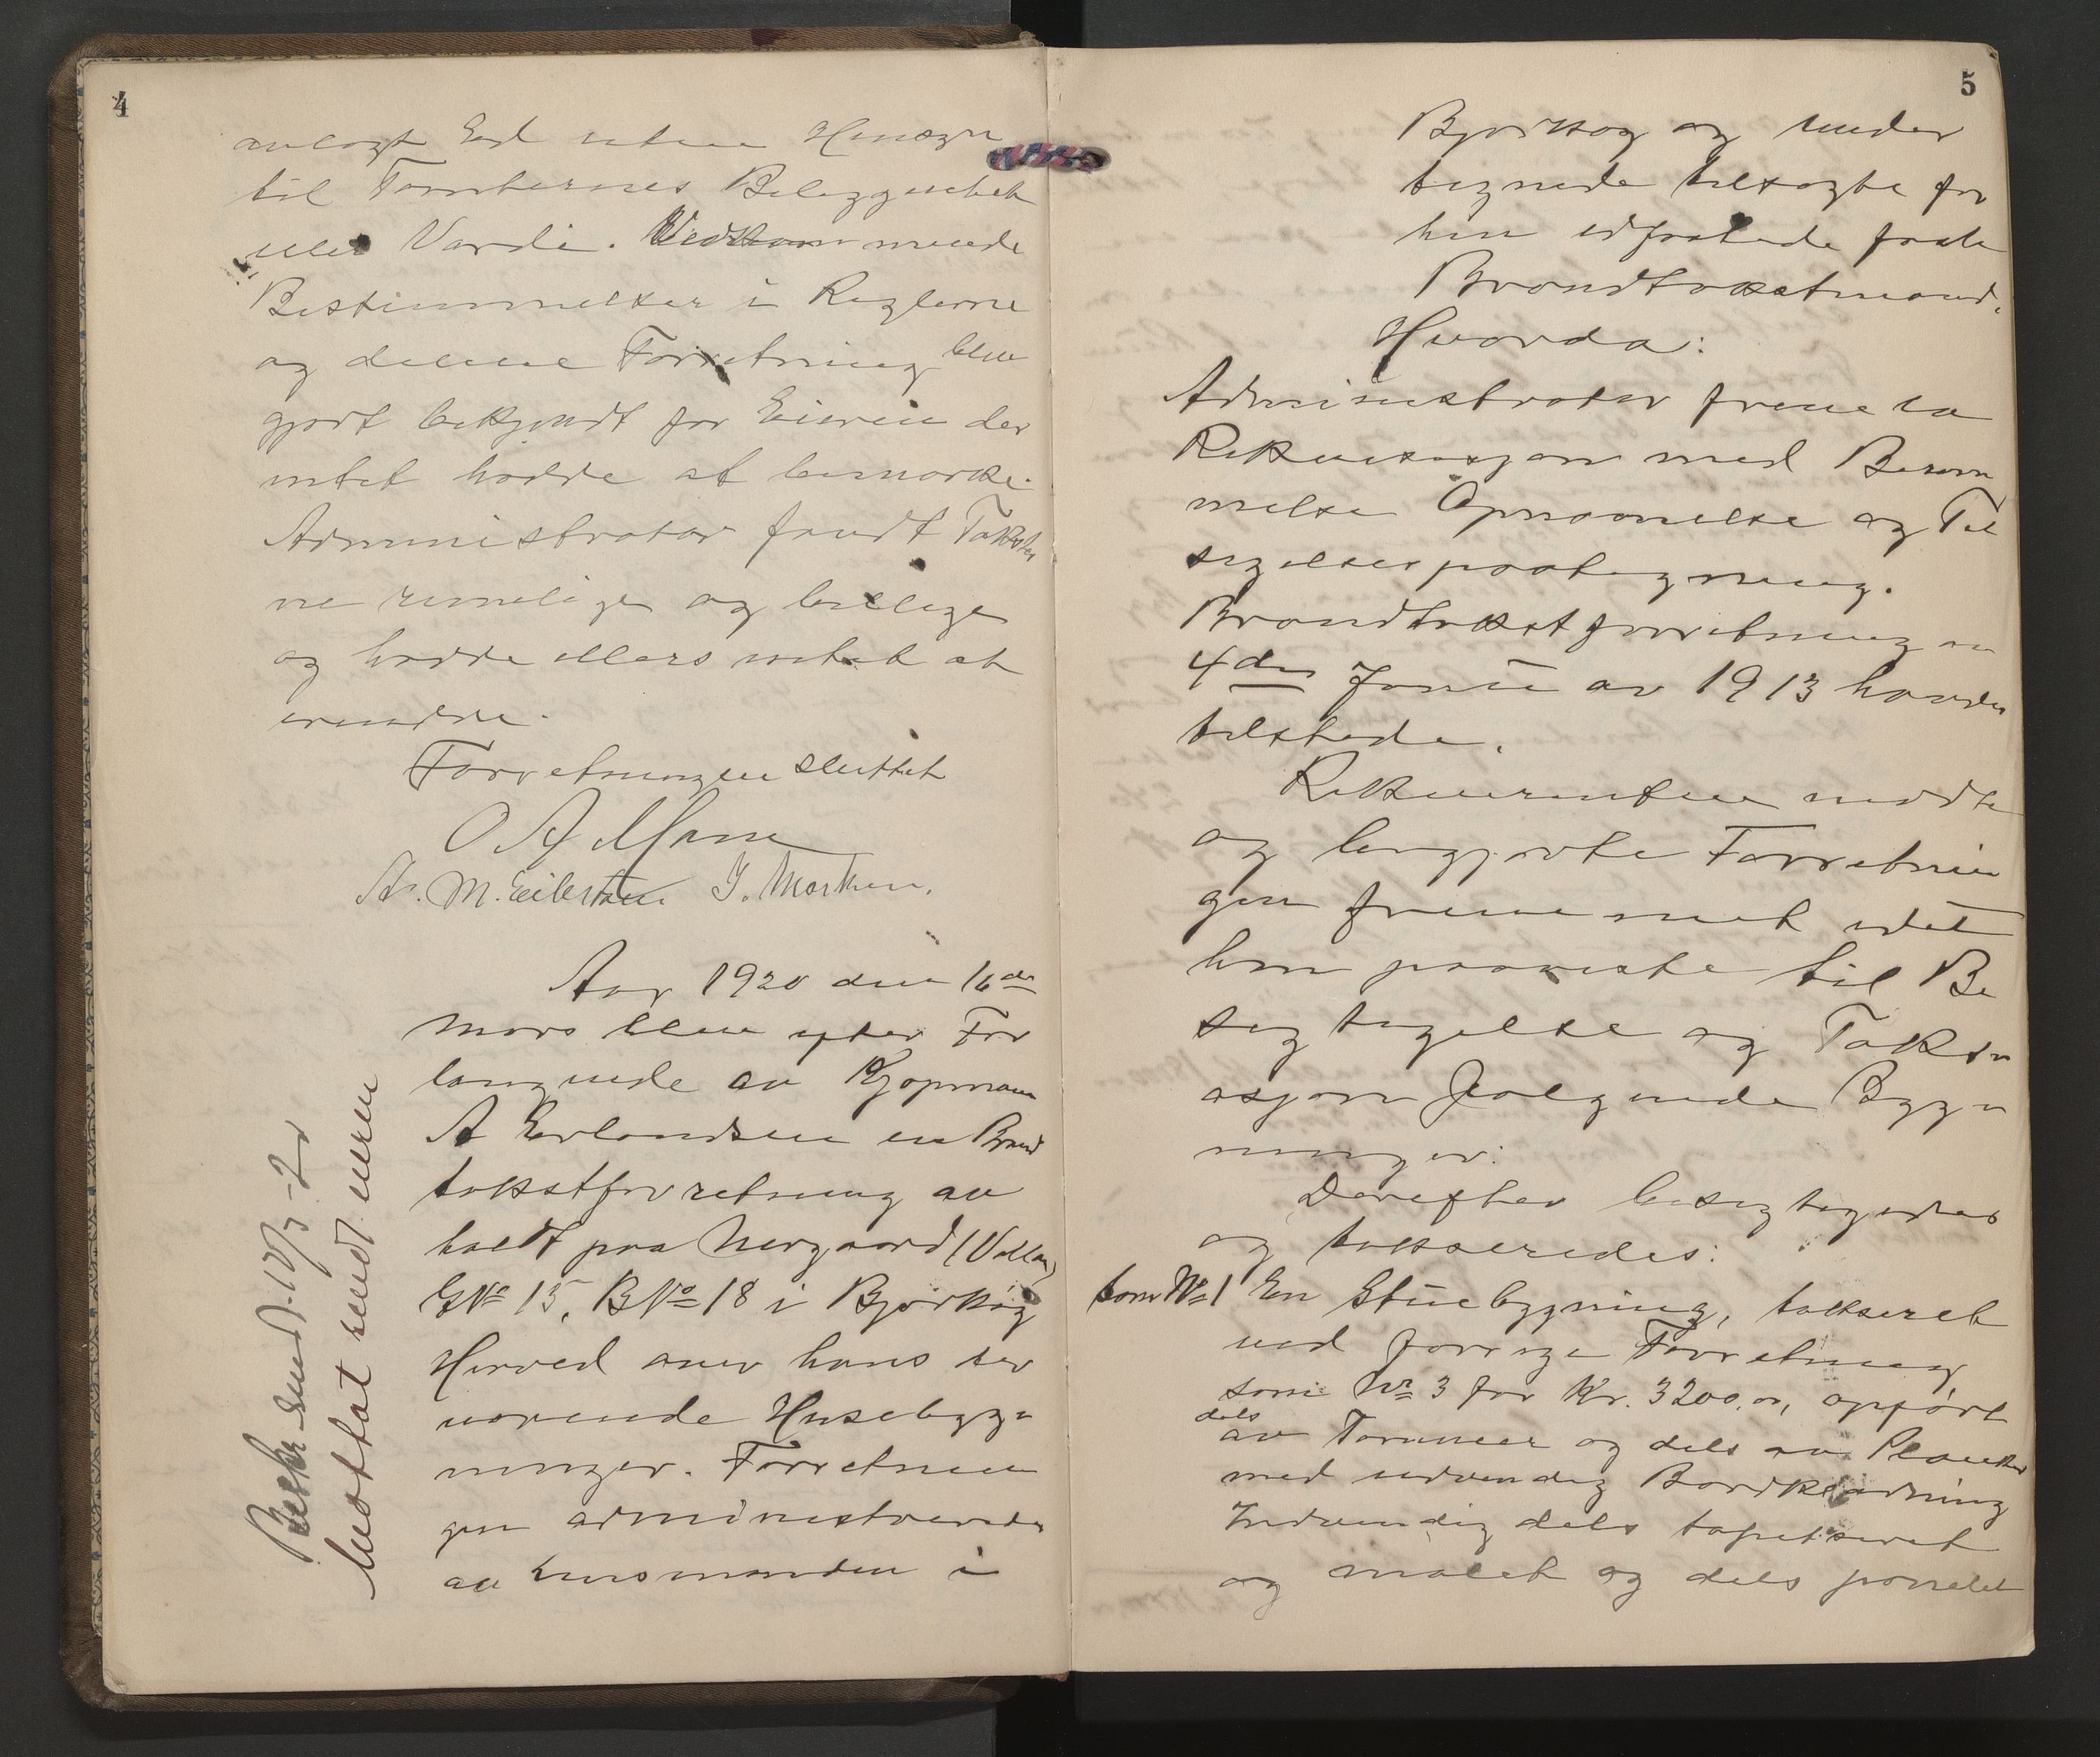 4
avlagt Ed uten Hensyn
til Tomternes Beliggenhet
eller Værdi. Vedkommende
Bestemmelser i Reglerne
og denne Forretning blev
gjort bekjendt for Eieren der
intet hadde at bemærke.
Administrator fandt Takster
ne rimelige og billige
og hadde ellers intet at
erindre.
Forretningen sluttet
O A Moen
A. M. Eilertsen J. Morken.
Aar 1920 den 16de
Mars blev efter For
langende av Kjøpmann
A Erlandsen en Brand
takstforretning av
holdt paa Nergaard (Vollan)
GNo 15, BNo 18 i Bjørkøy
Herred over hans der
værende Husebyg=
ninger. Forretnin
gen administreredes
av Lensmanden i
Beskr. sendt. 18/3-20
Mottat sendt eieren
5
Bjarkøy og under
tegnede tilsagte for
hen edfæstede faste
Brandtakstmænd.
Hvorda:
Administrator fremla
Rekvisisjon med Beram
melse Opnævnelse og Til
sigelsespaategning.
Brandtakstforretning av
4de Juni av 1913 havdes
tilstede.
Rekvirenten mødte
og begjærte Forretnin
gen fremmet idet
han paaviste til Be
sigtigelse og Taks=
asjon følgende Byg=
ninger:
Derefter besigtigedes
og takseredes:
som No 1 En Stuebygning, takseret
ved forrige Forretning
som Nr 3 for Kr. 3200.00, opført
dels
av Tømmer og dels av Planker
med udvendig Bordklædning
Indvendig dels tapetseret
og malet og dels panelet